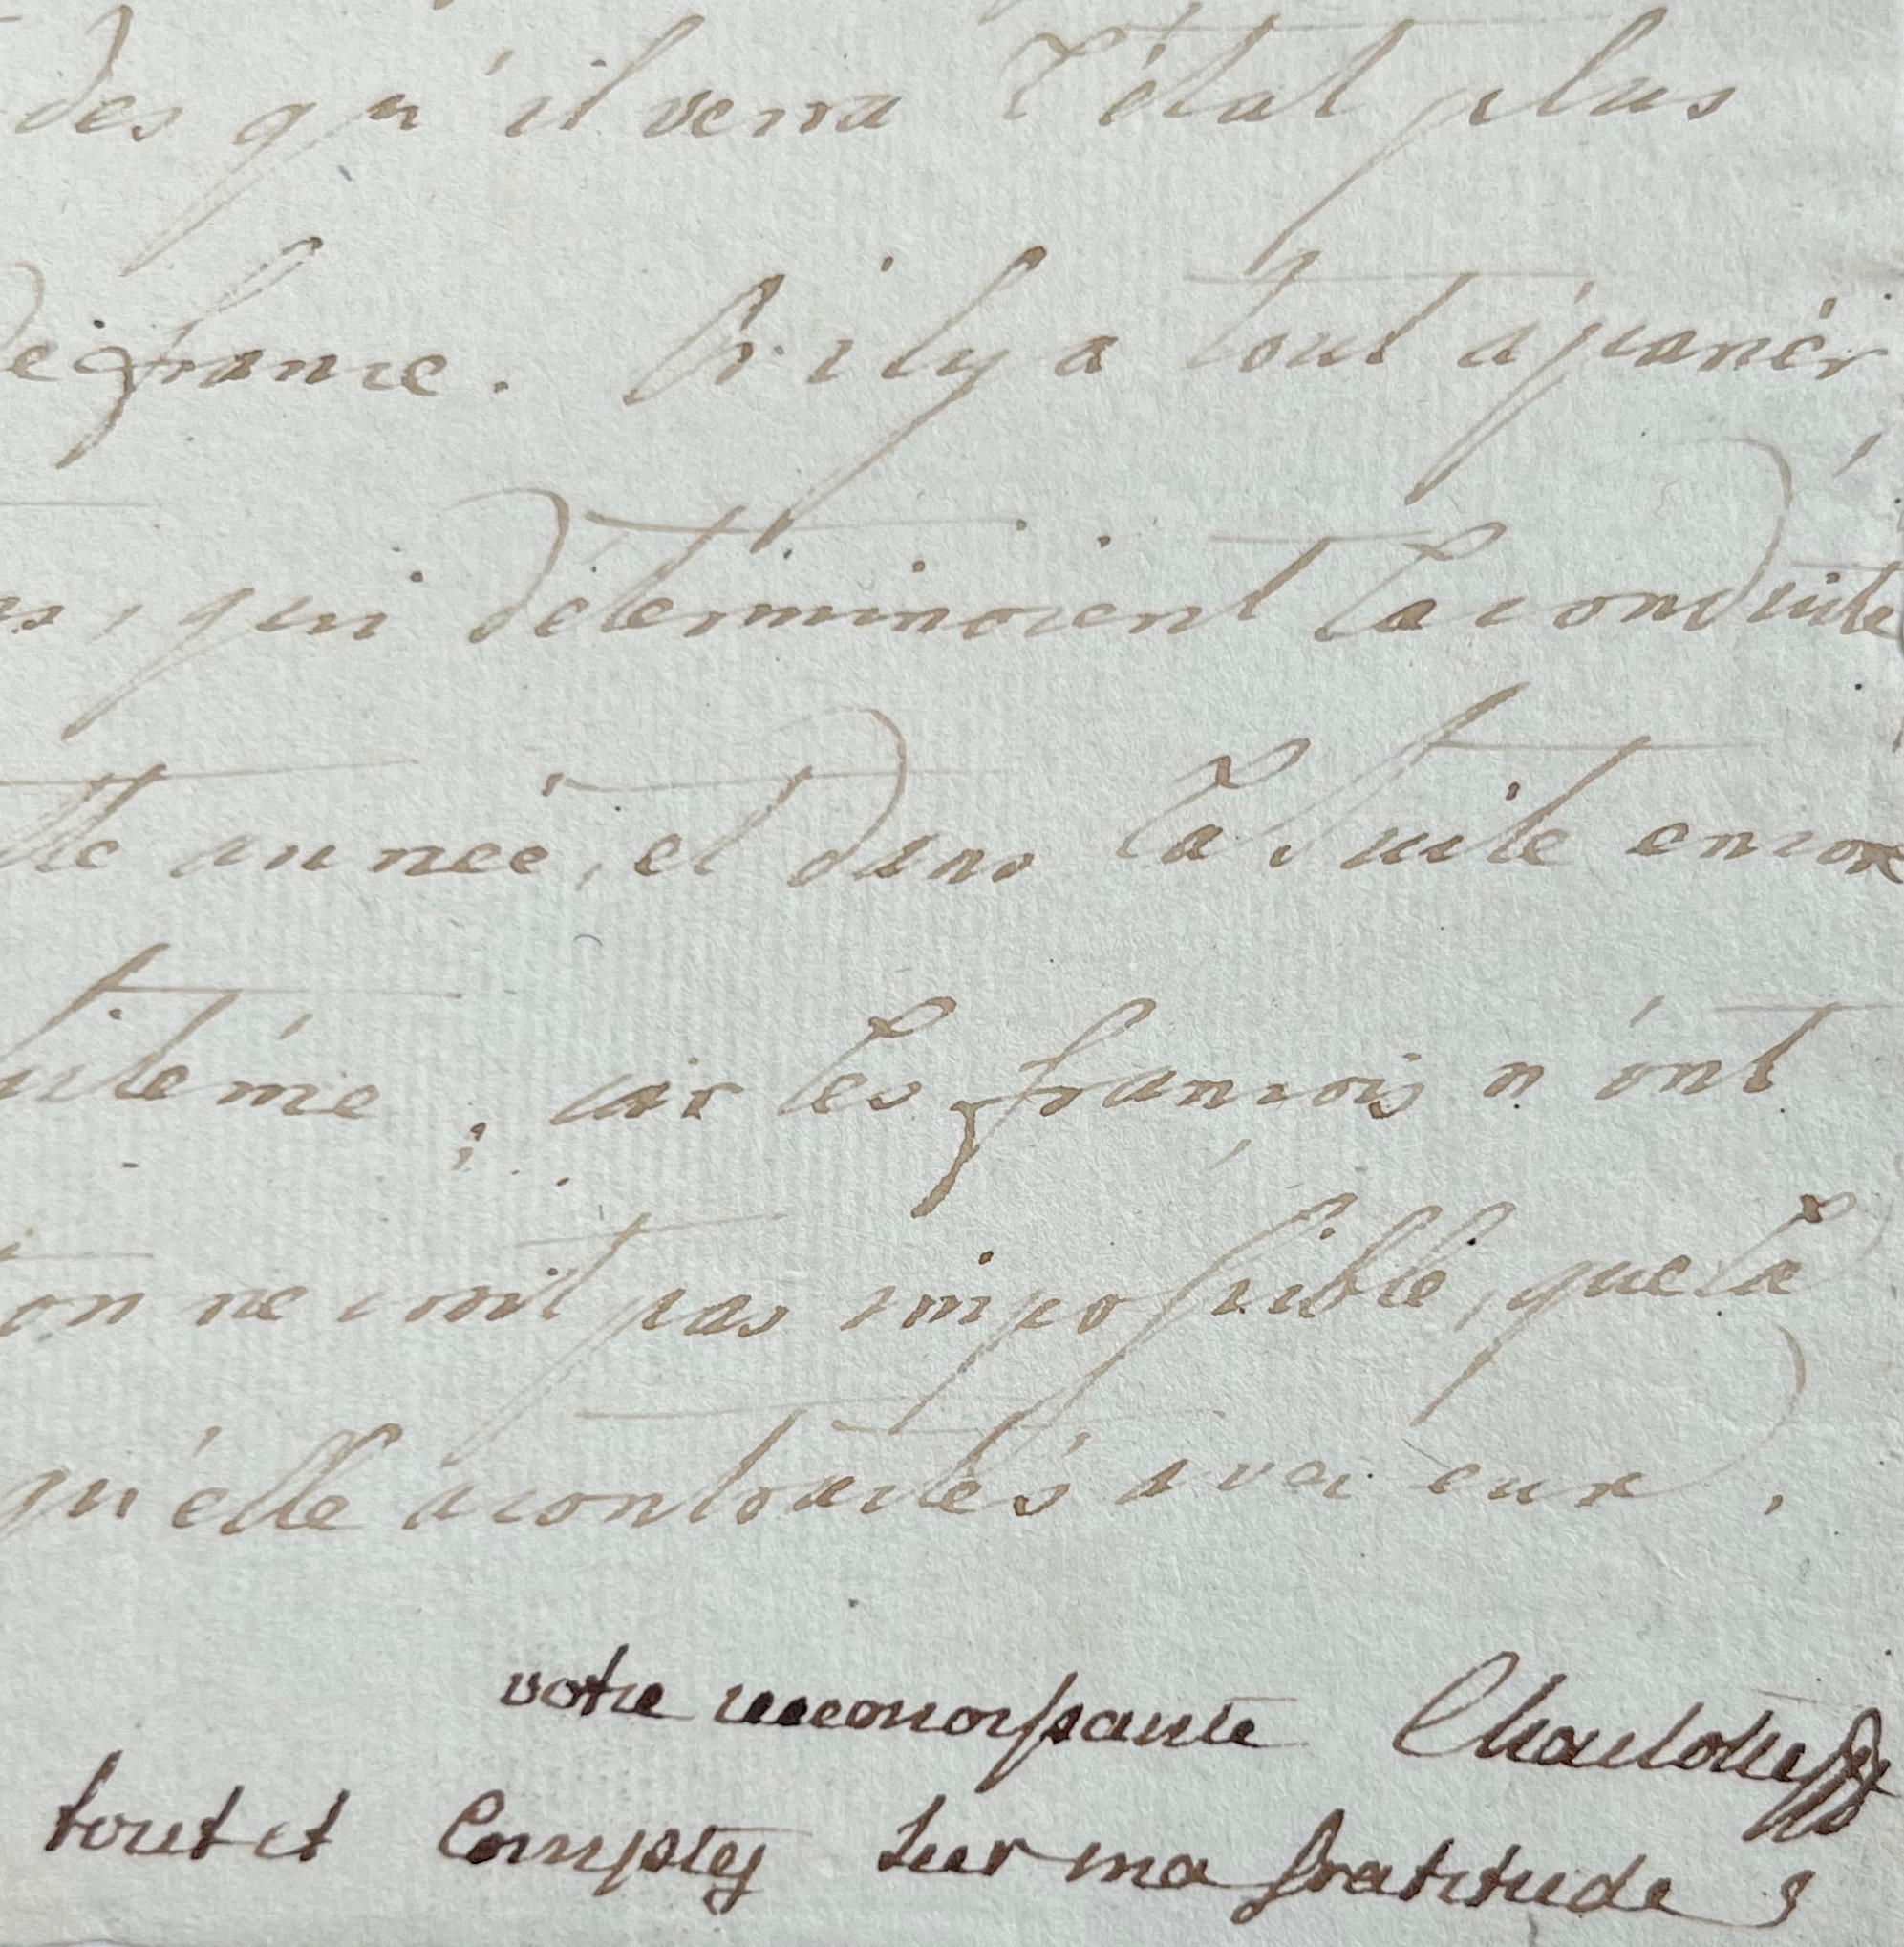 des qu'il verra l'état plus
de france. Or il y a tout à parier,
qui déterminoient la conduite
année, et dans la Suite encore
car les francois n'ont
on ne croit pas impossible, que la
qu'elle a contractés avec eux.
votre reconoissante Charlotte
tout et Comptez Sur ma Gratitude